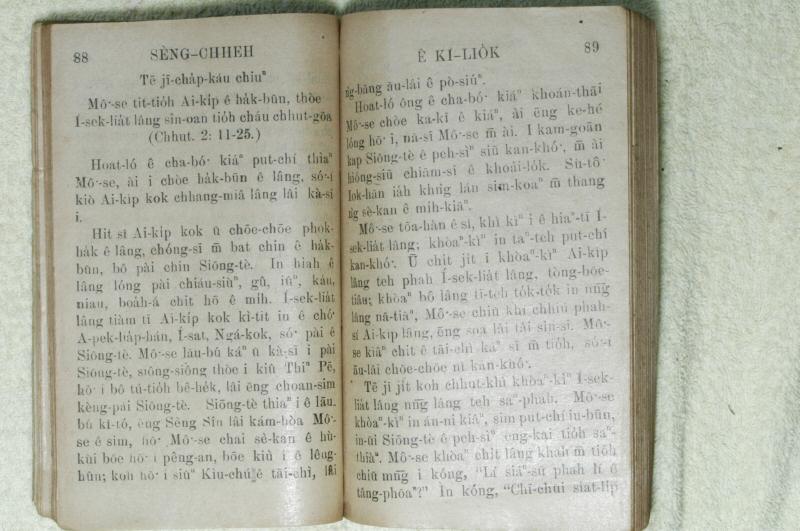 88
SÈNG-CHHEH
Tē jī-cha̍p-káu chiuⁿ
Mô͘-se tit-tio̍h Ai-ki̍p ê ha̍k-būn, thòe
Í-sek-lia̍t lâng sin-oan tio̍h cháu chhut-gōa
(Chhut. 2: 11-25.)
Hoat-ló ê cha-bó͘ kiáⁿ put-chí thiàⁿ
Mô͘-se, ài i chòe ha̍k-būn ê lâng, só͘-í
kiò Ai-ki̍p kok chhang-miâ lâng lâi kà-sī
i.
Hit sî Ai-ki̍p kok ū chōe-chōe phok-
ha̍k ê lâng, chóng-sī m̄ bat chin ê ha̍k-
būn, bô pài chin Siōng-tè. In hiah ê
lâng lóng pài chiáu-siùⁿ, gû, iûⁿ, káu,
niau, boa̍h-á chit hō ê mi̍h. Í-sek-lia̍t
lâng tiàm tī Ai-ki̍p kok kì-tit in ê chó͘
A-pek-la̍p-hán, Í-sat, Ngá-kok, só͘ pài ê
Siōng-tè. Mô͘-se lāu-bú káⁿ ū kà-sī i pài
Siōng-tè, siông-siông thòe i kiû Thiⁿ Pē,
hō͘ i bô tú-tio̍h bê-he̍k, lâi ēng choan-sim
kèng-pài Siōng-tè. Siōng-tè thiaⁿ i ê lāu-
bú kî-tó, ēng Sèng Sîn lâi kám-hòa Mô͘-
se ê sim, hō͘ Mô͘-se chai sè-kan ê hù-
kùi bōe hō͘ i pêng-an, bōe kiù i ê lêng-
hûn; koh hō͘ i siūⁿ Kiù-chú ê tāi-chì, lâi
Ê KÌ-LIO̍K
89
n̄g-bāng āu-lâi ê pò-siúⁿ.
Hoat-ló ông ê cha-bó͘ kiáⁿ khoán-thāi
Mô͘-se chòe ka-kī ê kiáⁿ, ài ēng ke-hé
lóng hō͘ i, ná-sī Mô͘-se m̄ ài. I kam-goān
kap Siōng-tè ê peh-sìⁿ siū kan-khó͘, m̄ ài
hióng-siū chiām-sî ê khoài-lo̍k. Sù-tô͘
Iok-hān iáh khǹg lán sim-koaⁿ m̄ thang
n̄g sè-kan ê mi̍h-kiāⁿ.
Mô͘-se tōa-hàn ê sî, khì kìⁿ i ê hiaⁿ-tī Í-
sek-lia̍t lâng; khòaⁿ-kìⁿ in taⁿ-teh put-chí
kan-khó͘. Ū chit ji̍t i khòaⁿ-kìⁿ Ai-ki̍p
lâng teh phah Í-sek-lia̍t lâng, tòng-bōe-
tiâu; khòaⁿ bô lâng tī-teh to̍k-to̍k in nn̄g
lâng nā-tiāⁿ, Mô͘-se chiū khí chhiú phah-
sí Ai-ki̍p lâng, ēng soa lâi tâi sin-si. Mô͘-
se kiâⁿ chit ê tāi-chì káⁿ sī m̄ tio̍h, só͘-í
āu-lâi chōe-chōe nî kan-khó͘.
Tē jī ji̍t koh chhut-khì khòaⁿ-kìⁿ Í-sek-
lia̍t lâng nn̄g lâng teh saⁿ-phah. Mô͘-se
khòaⁿ-kìⁿ in án-ni kiâⁿ, sim put-chí iu-būn,
in-ūi Siōng-tè ê peh-sìⁿ eng-kai tio̍h saⁿ-
thiàⁿ. Mô͘-se khòaⁿ chit lâng khah m̄ tio̍h
chiū mn̄g i kóng, "Lí siáⁿ-sū phah lí ê
tâng-phōaⁿ?" In kóng, "Chī-chūi siat-li̍p